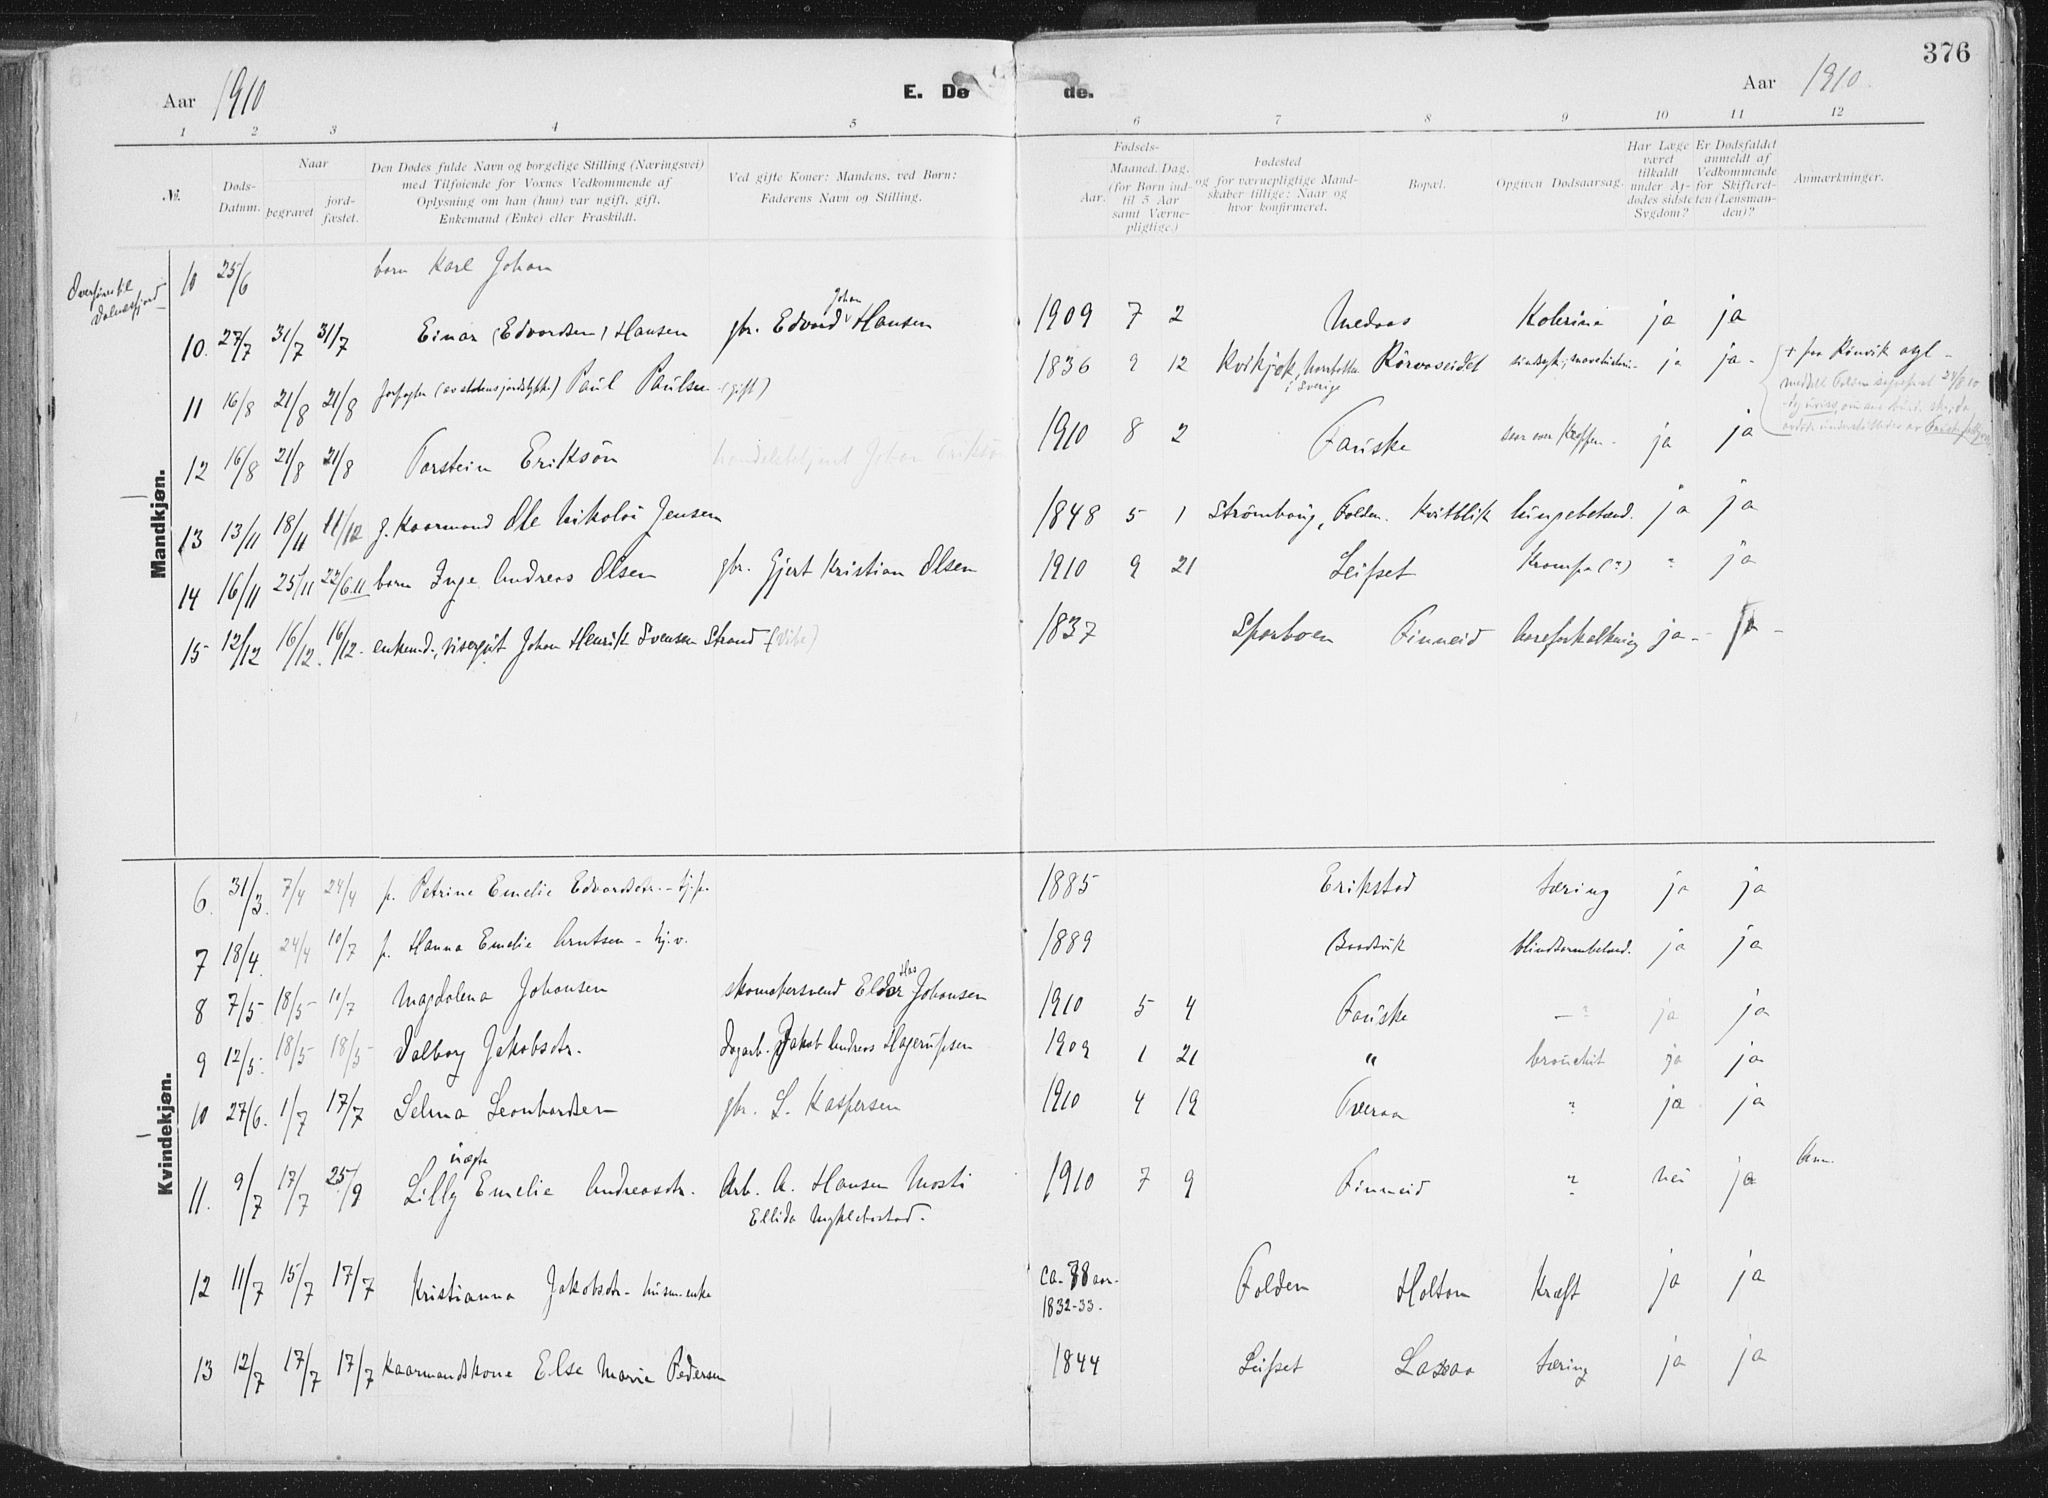 376
Aar 1910
E. Dø de.
Aar 1910.
1 2 3 4 5 6 7 8 9 10 11 12
№.
Døds-Datum.
Naar
begravet
jord-fæstet.
Den Dødes fulde Navn og borgelige Stilling (Næringsvei)
med Tilføiende for Voxnes Vedkommende af
Oplysning om han (hun) var ugift, gift,
Enkemand (Enke) eller Fraskildt.
Ved gifte Koner: Mandens, ved Børn:
Faderens Navn og Stilling.
Fødsels-
Aar. Maaned. Dag.
(for Børn ind-
til 5 Aar
samt Værne-
pligtige.)
Fødested
og for værnepligtige Mand-
skaber tillige: Naar og
hvor konfirmeret.
Bopæl.
Opgiven Dødsaarsag.
Har Læge
været
tilkaldt
under Af-
dødes sidste
Sygdom?
Er Dødsfaldet
anmeldt af
Vedkommende
for Skifteret-
ten (Lensman-
den)?
Anmærkninger.
Mandkjøn.
10 25/6 barn Karl Johan
10. 27/7 31/7 31/7 Einar (Edvardsen) Hansen gbr. Edvard Johan Hansen 1909 7 2 Medaas Kolerine ja ja
11 16/8 21/8 21/8 Paul Paulsen (gift) 1836 9 12 Kvikjok, i Sverige Rörvaseidet ja ja -
+ paa Rönvik asyl -
12 16/8 21/8 21/8 Torstein Eriksön handelsbetjent Johan Eriksön 1910 8 2 Fauske saar over kroppen - ja ja
13 13/11 18/11 11/12 g. Kaarmand Ole Nikolai Jensen 1848 5 1 Strömhaug, Folden. Kvitblik lungebetænd. ja ja
14 16/11 25/11 barn Inge Andreas Olsen gbr. Gjert Kristian Olsen 1910 9 21 Leifset Krampe (?) " ja
15 12/12 16/12. 16/12. enkemd., Johan Henrik Svensen Strand 1837 Finneid Aareforkalkning ja - ja -
Kvindekjøn.
6. 31/3. 7/4 24/4 p. Petrine Emelie Edvardsdtr. - tj.p. 1885 Erikstad tæring ja ja
7 18/4. 24/4 10/7 p. Hanna Emelie Arntsen - 1889 blindtarmbetænd. ja ja
8 7/5 18/5 10/7 Magdalena Johansen skomakersvend Johansen 1910 5 4 Fauske - ? ja ja
9 12/5. 18/5 18/5 Valborg Jakobsdtr. Dagarb. Jakob Andreas Hagerupsen 1909 1 21 " bronchit ja ja
10 27/6. 1/7 17/7 Selma Leonhardsen gbr. L. Kaspersen 1910 4 19 Tveraa ? ja ja
11. 9/7 17/7 25/9 uægte Lilly Emelie Andreasdtr. Arb. A. Hansen Mosti 1910 7 9 Finneid ? nei ja Anm.
Ellida Myklebostad.
12 11/7 15/7 17/7 Kristianna Jakobsdtr. husm.enke ca. 78 aar. Folden Holtan Kræft ja ja
1832-33.
13 12/7 17/7 17/7 Kaarmandskone Else Marie Pedersen 1844 Leifset Laxaa tæring ja ja